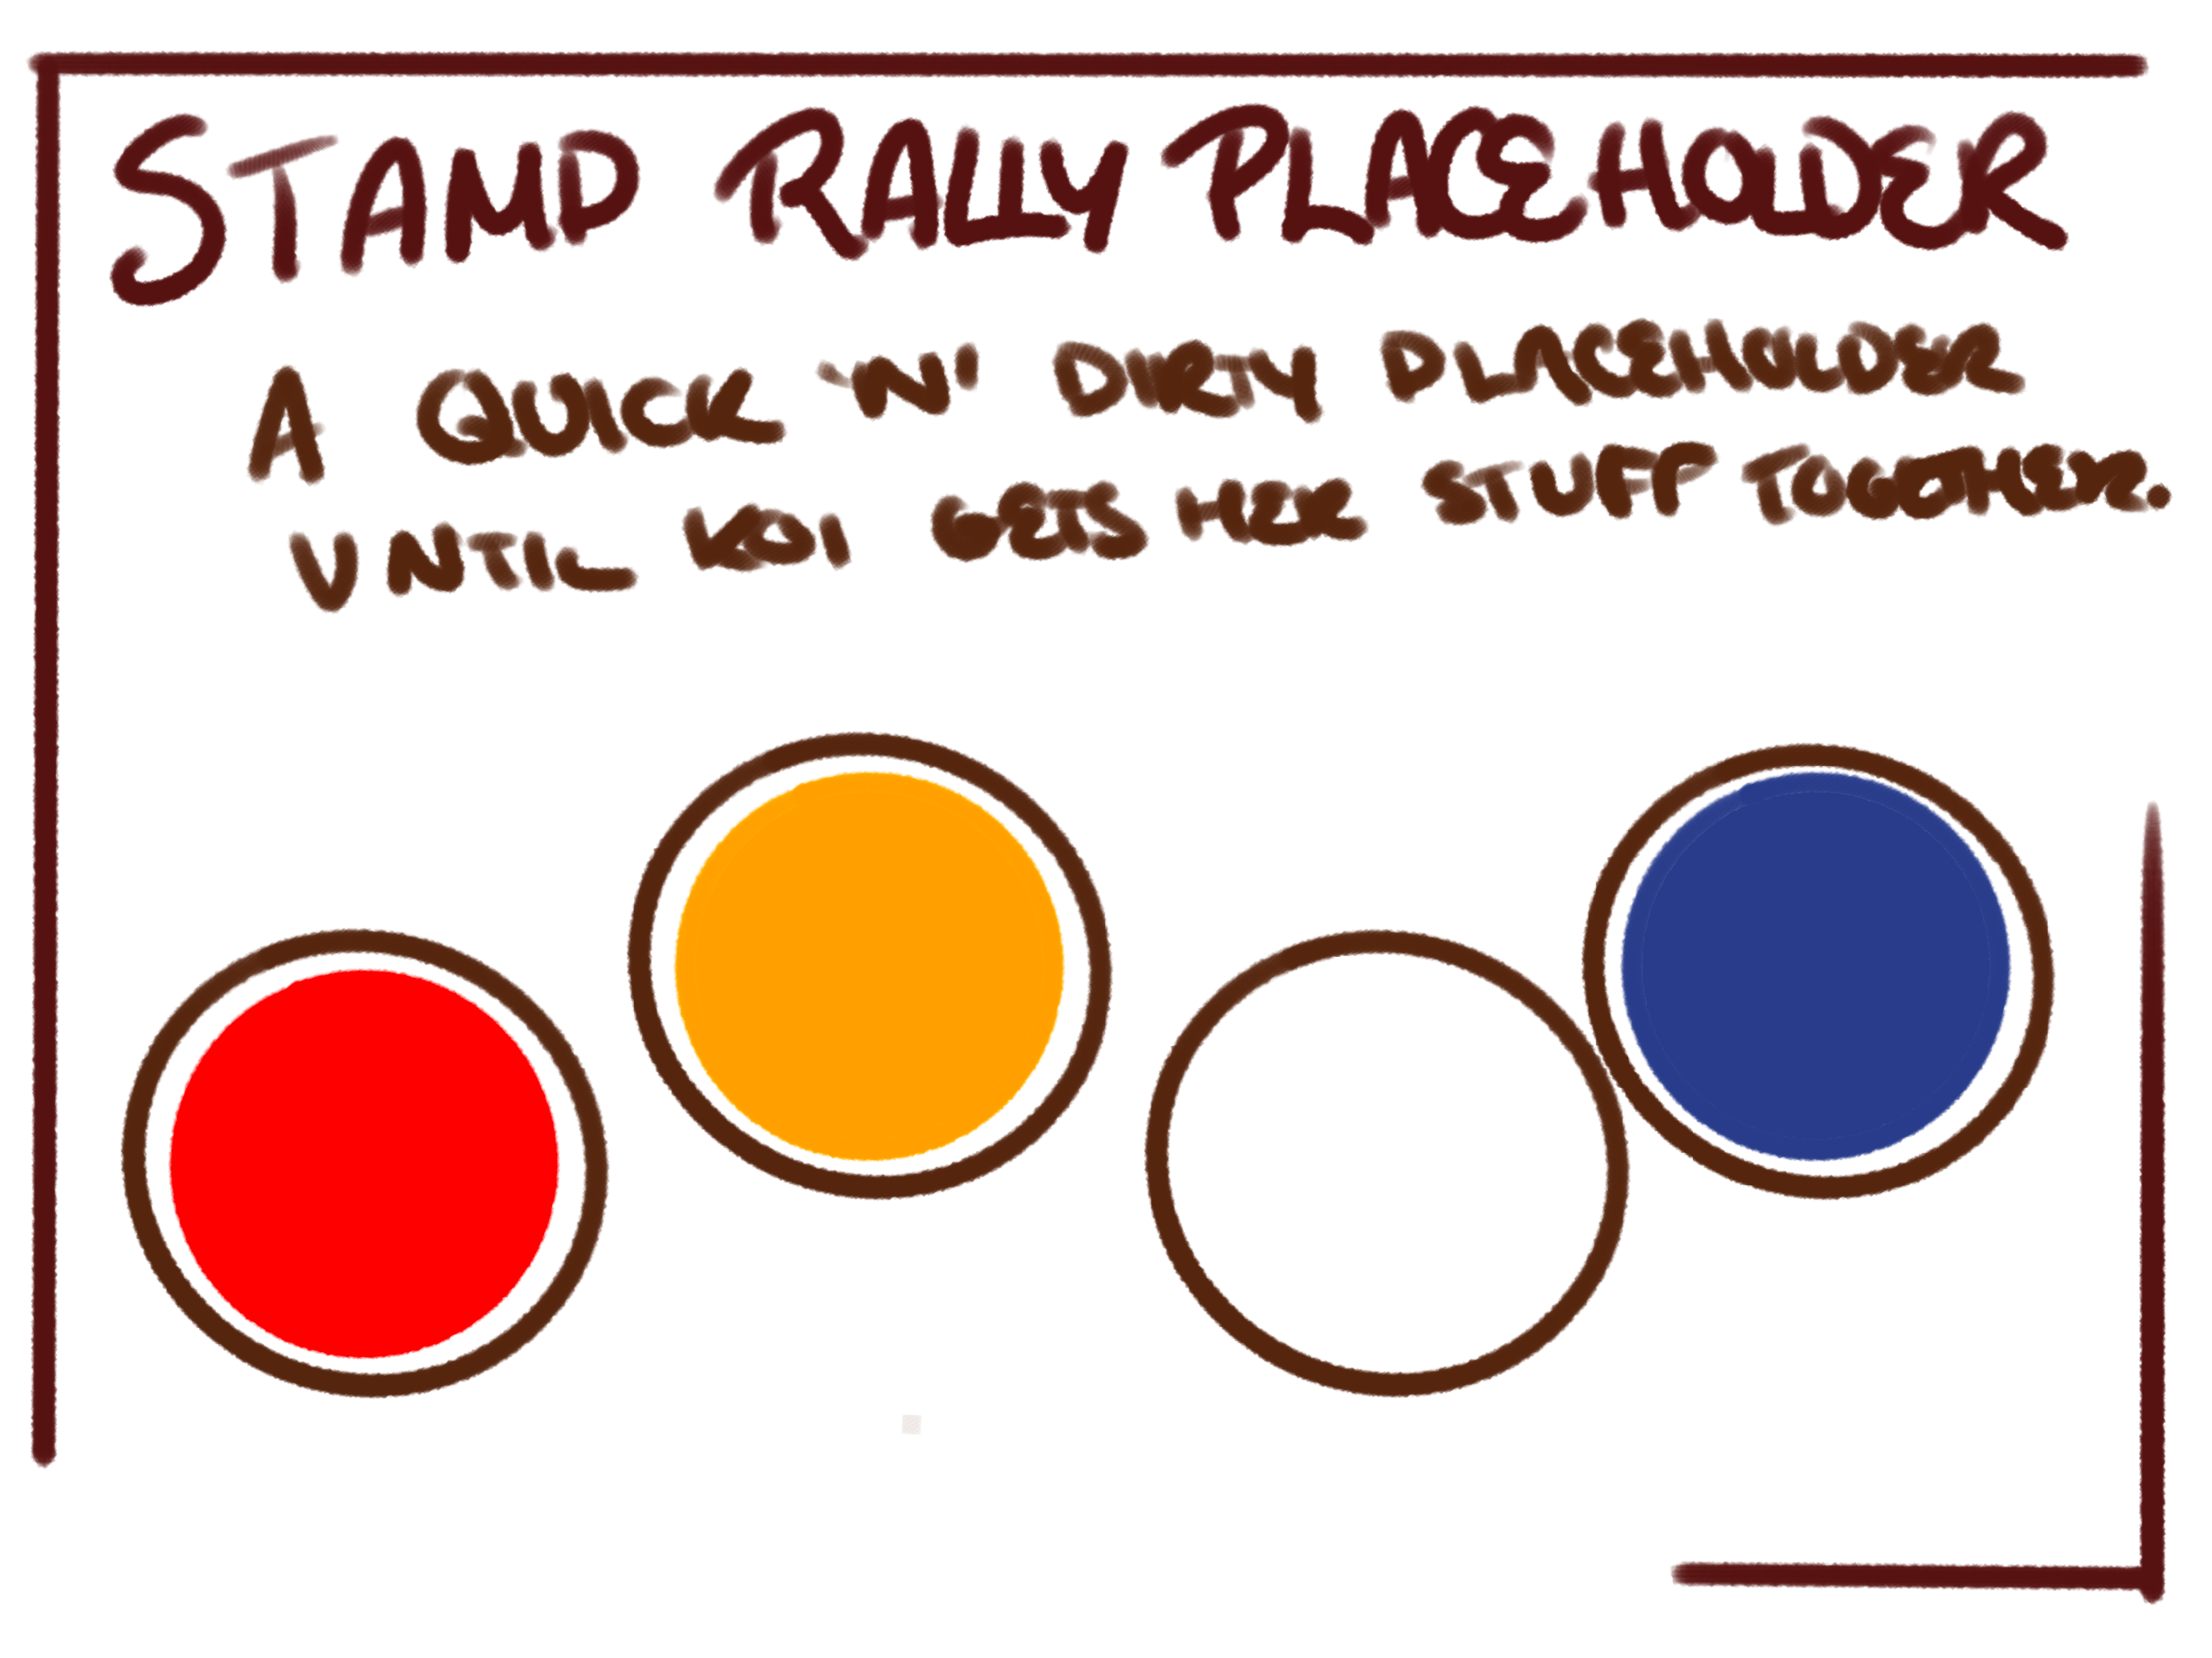 STAMD RALLY PLACEHOLDER
A QUICK 'N' DIRTY PLACEHOLDER
UNTIL KOI GETS HER STUFF TOGETHER.